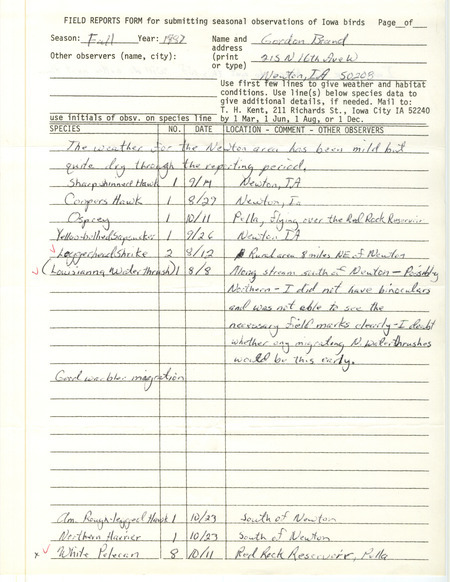 FIELD REPORTS FORM for submitting seasonal observations of Iowa birds Page__of__
Season: Fall Year: 1987 Name and Gordon Brand
Other observers (name, city): address
(print 215 N 16th Ave W
or type) Newton, IA 50208
Use first few lines to give weather and habitat
conditions. Use line(s) below species data to
give additional details, if needed. Mail to:
T. H. Kent, 211 Richards St., Iowa City IA 52240
use initials of obsv. on species line by 1 Mar, 1 Jun, 1 Aug, or 1 Dec.
SPECIES NO. DATE LOCATION - COMMENT - OTHER OBSERVERS
The weather for the Newton area has been mild but
quite dry through the reporting period.
Sharpshinned Hawk 1 9/19 Newton, IA
Coopers Hawk 1 8/27 Newton, Ia
Osprey 1 10/11 Pella, flying over the Red Rock Reservoir
Yellow-bellied Sapsucker 1 9/26 Newton IA
✓ Loggerhead Shrike 2 8/12 Rural area 8 miles NE of Newton
✓ (Louisianna Waterthrush) 1 8/8 Along stream south of Newton - Possibley
Northern - I did not have binoculars
and was not able to see the
necessary field marks clearly - I doubt
whether any migrating N. Waterthrushes
would be this early.
Good warbler migration
Am. Rough-legged Hawk 1 10/23 South of Newton
Northern Harrier 1 10/23 South of Newton
x ✓ White Pelican 8 10/11 Red Rock Reservoir, Pella